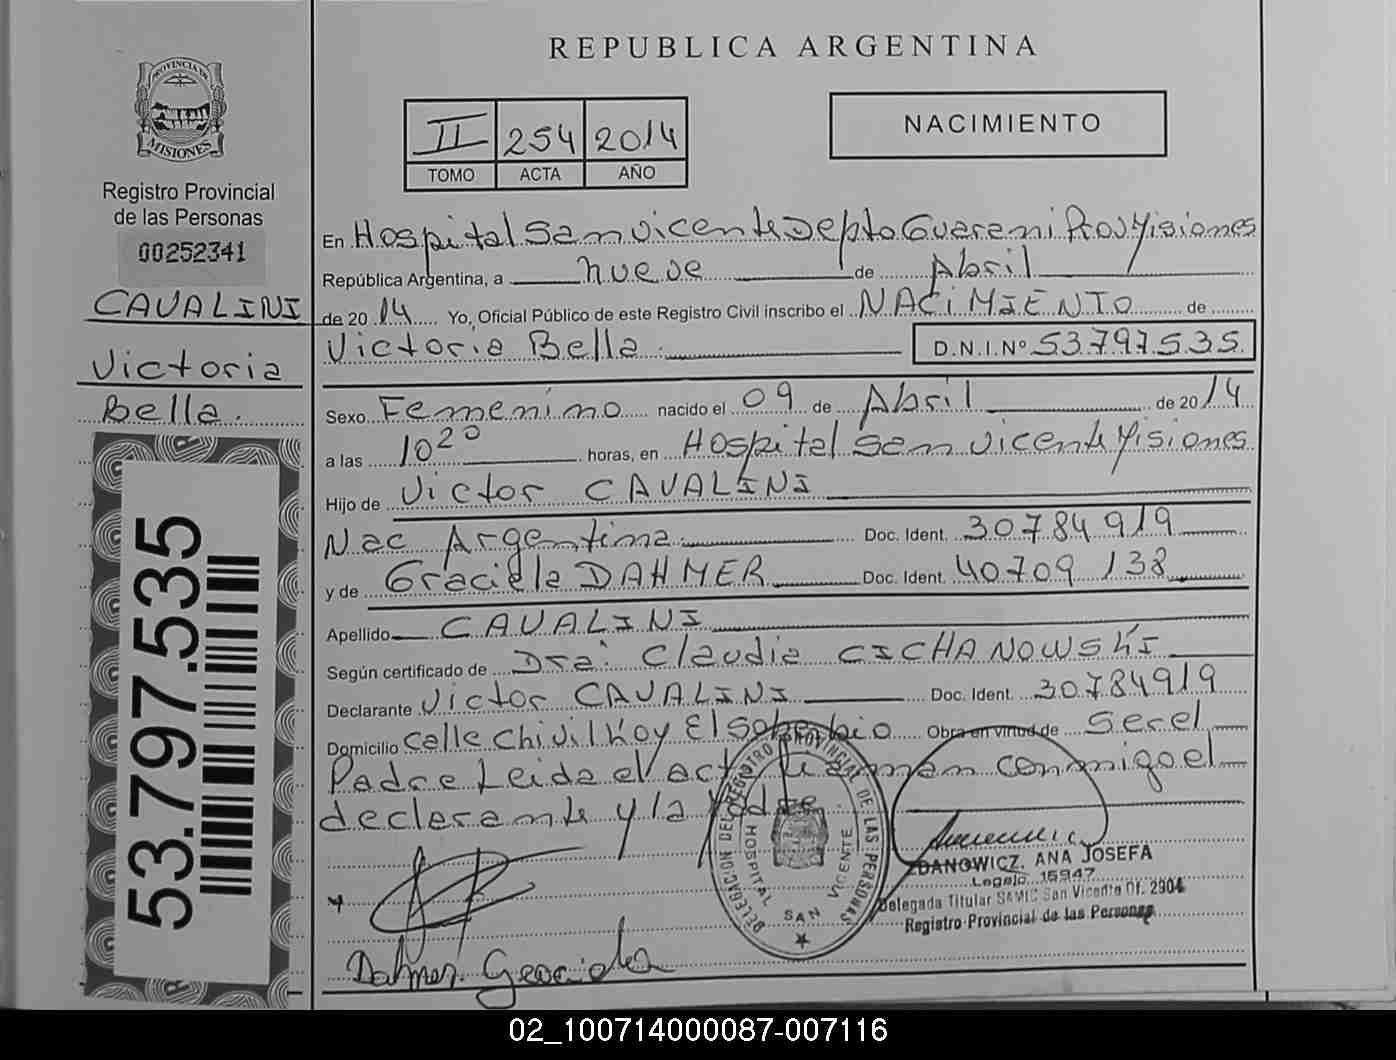 REPUBLICA ARGENTINA
PROVINCIA DE
MISIONES
Registro Provincial
de las Personas
00252341
CAVALINI
Victoria
Bella.
53.797.535
II 254 2014
TOMO ACTA AÑO
NACIMIENTO
En Hospital San Vicente Depto Guarani Prov Misiones
República Argentina, a nueve de Abril
de 20 14 Yo, Oficial Público de este Registro Civil inscribo el NACIMIENTO de
Victoria Bella. D.N.I.Nº 53.797.535.
Sexo Femenino nacido el 09 de Abril de 20 14
a las 10 20 horas, en Hospital San Vicente Misiones
Hijo de Victor CAVALINI
Nac Argentina Doc. Ident. 30784919
y de Graciela DAHMER Doc. Ident. 40709 138
Apellido CAVALINI
Según certificado de Dra. Claudia CICHANOWSKI
Declarante Victor CAVALINI Doc. Ident. 30784919
Domicilio calle Chivilkoy El Soberbio Obra en virtud de Ser el
Padre Leida el acta firman conmigo el
declarante y la Madre
DELEGACION DEL REGISTRO PROVINCIAL DE LAS PERSONAS
HOSPITAL SAN VICENTE
ZDANOWICZ, ANA JOSEFA
Legajo 15947
Delegada Titular SAMIC San Vicente Of. 2904
Registro Provincial de las Personas
Dahmer Graciela
02_100714000087-007116